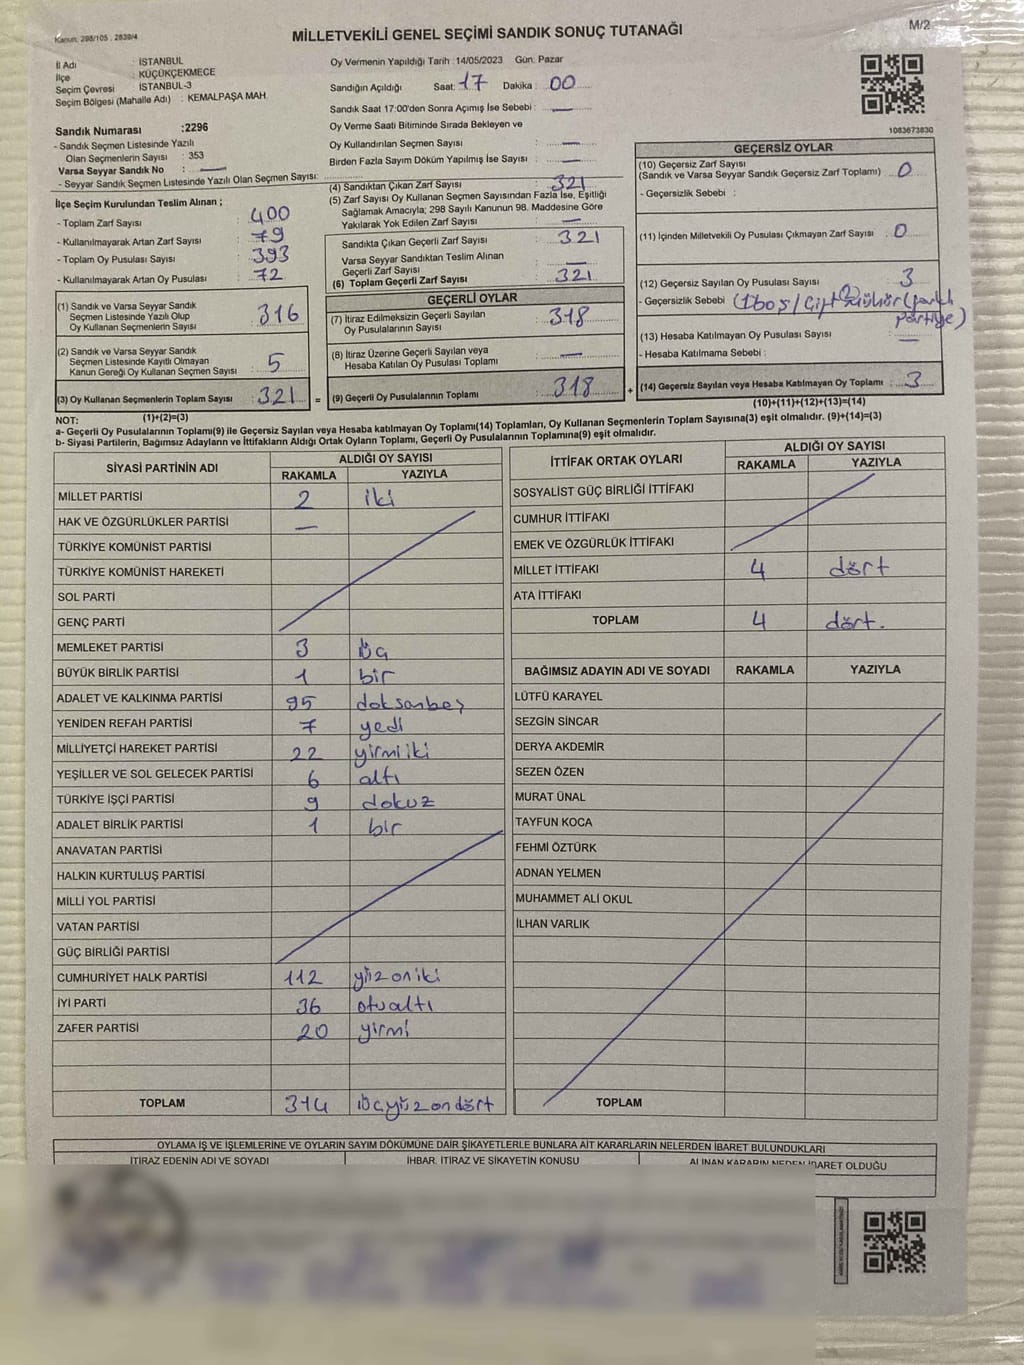 Kanun: 298/105 , 2839/4
MİLLETVEKİLİ GENEL SEÇİMİ SANDIK SONUÇ TUTANAĞI
M/2
İl Adı : İSTANBUL
İlçe : KÜÇÜKÇEKMECE
Seçim Çevresi : İSTANBUL-3
Seçim Bölgesi (Mahalle Adı) : KEMALPAŞA MAH.
Oy Vermenin Yapıldığı Tarih : 14/05/2023 Gün: Pazar
Sandığın Açıldığı Saat: 17 Dakika : 00
Sandık Saat 17:00'den Sonra Açımış İse Sebebi : —
Oy Verme Saati Bitiminde Sırada Bekleyen ve
Oy Kullandırılan Seçmen Sayısı : —
Birden Fazla Sayım Döküm Yapılmış İse Sayısı : —
1083673830
Sandık Numarası :2296
- Sandık Seçmen Listesinde Yazılı
Olan Seçmenlerin Sayısı : 353
Varsa Seyyar Sandık No : —
- Seyyar Sandık Seçmen Listesinde Yazılı Olan Seçmen Sayısı:
İlçe Seçim Kurulundan Teslim Alınan ;
- Toplam Zarf Sayısı : 400
- Kullanılmayarak Artan Zarf Sayısı : 79
- Toplam Oy Pusulası Sayısı : 393
- Kullanılmayarak Artan Oy Pusulası : 72
(1) Sandık ve Varsa Seyyar Sandık
Seçmen Listesinde Yazılı Olup
Oy Kullanan Seçmenlerin Sayısı : 316
(2) Sandık ve Varsa Seyyar Sandık
Seçmen Listesinde Kayıtlı Olmayan
Kanun Gereği Oy Kullanan Seçmen Sayısı : 5
(3) Oy Kullanan Seçmenlerin Toplam Sayısı : 321
(1)+(2)=(3)
(4) Sandıktan Çıkan Zarf Sayısı : 321
(5) Zarf Sayısı Oy Kullanan Seçmen Sayısından Fazla İse, Eşitliği
Sağlamak Amacıyla; 298 Sayılı Kanunun 98. Maddesine Göre
Yakılarak Yok Edilen Zarf Sayısı : —
Sandıkta Çıkan Geçerli Zarf Sayısı : 321
Varsa Seyyar Sandıktan Teslim Alınan
Geçerli Zarf Sayısı : —
(6) Toplam Geçerli Zarf Sayısı : 321
GEÇERLİ OYLAR
(7) İtiraz Edilmeksizin Geçerli Sayılan
Oy Pusulalarının Sayısı : 318
(8) İtiraz Üzerine Geçerli Sayılan veya
Hesaba Katılan Oy Pusulası Toplamı : —
= (9) Geçerli Oy Pusulalarının Toplamı : 318 +
GEÇERSİZ OYLAR
(10) Geçersiz Zarf Sayısı
(Sandık ve Varsa Seyyar Sandık Geçersiz Zarf Toplamı) : 0
- Geçersizlik Sebebi :
(11) İçinden Milletvekili Oy Pusulası Çıkmayan Zarf Sayısı : 0
(12) Geçersiz Sayılan Oy Pusulası Sayısı : 3
- Geçersizlik Sebebi (1boş/Çift
(13) Hesaba Katılmayan Oy Pusulası Sayısı : —
- Hesaba Katılmama Sebebi :
(14) Geçersiz Sayılan veya Hesaba Katılmayan Oy Toplamı : 3
(10)+(11)+(12)+(13)=(14)
NOT:
a- Geçerli Oy Pusulalarının Toplamı(9) ile Geçersiz Sayılan veya Hesaba katılmayan Oy Toplamı(14) Toplamları, Oy Kullanan Seçmenlerin Toplam Sayısına(3) eşit olmalıdır. (9)+(14)=(3)
b- Siyasi Partilerin, Bağımsız Adayların ve İttifakların Aldığı Ortak Oyların Toplamı, Geçerli Oy Pusulalarının Toplamına(9) eşit olmalıdır.
SİYASİ PARTİNİN ADI ALDIĞI OY SAYISI
RAKAMLA YAZIYLA
MİLLET PARTİSİ 2 iki
HAK VE ÖZGÜRLÜKLER PARTİSİ —
TÜRKİYE KOMÜNİST PARTİSİ
TÜRKİYE KOMÜNİST HAREKETİ
SOL PARTİ
GENÇ PARTİ
MEMLEKET PARTİSİ 3 üç
BÜYÜK BİRLİK PARTİSİ 1 bir
ADALET VE KALKINMA PARTİSİ 95 doksanbeş
YENİDEN REFAH PARTİSİ 7 yedi
MİLLİYETÇİ HAREKET PARTİSİ 22 yirmiiki
YEŞİLLER VE SOL GELECEK PARTİSİ 6 altı
TÜRKİYE İŞÇİ PARTİSİ 9 dokuz
ADALET BİRLİK PARTİSİ 1 bir
ANAVATAN PARTİSİ
HALKIN KURTULUŞ PARTİSİ
MİLLİ YOL PARTİSİ
VATAN PARTİSİ
GÜÇ BİRLİĞİ PARTİSİ
CUMHURİYET HALK PARTİSİ 112 yüzoniki
İYİ PARTİ 36 otuzaltı
ZAFER PARTİSİ 20 yirmi
TOPLAM 314 üçyüzondört
İTTİFAK ORTAK OYLARI ALDIĞI OY SAYISI
RAKAMLA YAZIYLA
SOSYALİST GÜÇ BİRLİĞİ İTTİFAKI
CUMHUR İTTİFAKI
EMEK VE ÖZGÜRLÜK İTTİFAKI
MİLLET İTTİFAKI 4 dört
ATA İTTİFAKI
TOPLAM 4 dört.
BAĞIMSIZ ADAYIN ADI VE SOYADI RAKAMLA YAZIYLA
LÜTFÜ KARAYEL
SEZGİN SİNCAR
DERYA AKDEMİR
SEZEN ÖZEN
MURAT ÜNAL
TAYFUN KOCA
FEHMİ ÖZTÜRK
ADNAN YELMEN
MUHAMMET ALİ OKUL
İLHAN VARLIK
TOPLAM
OYLAMA İŞ VE İŞLEMLERİNE VE OYLARIN SAYIM DÖKÜMÜNE DAİR ŞİKAYETLERLE BUNLARA AİT KARARLARIN NELERDEN İBARET BULUNDUKLARI
İTİRAZ EDENİN ADI VE SOYADI İHBAR, İTİRAZ VE ŞİKAYETİN KONUSU ALINAN KARARIN NEDEN İBARET OLDUĞU